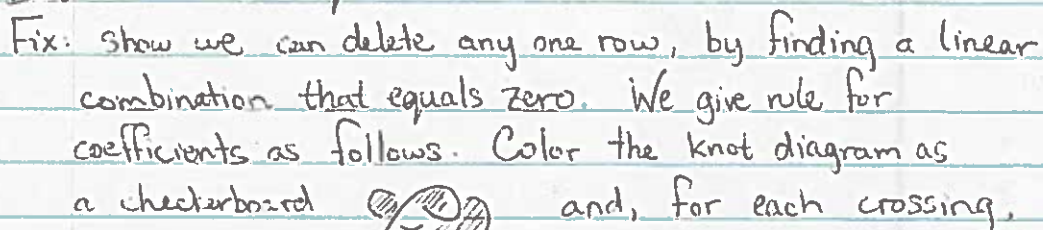 Fix: show we can delete any one row, by finding a linear
combination that equals zero. We give rule for
coefficients as follows. Color the knot diagram as
a checkerboard and, for each crossing,